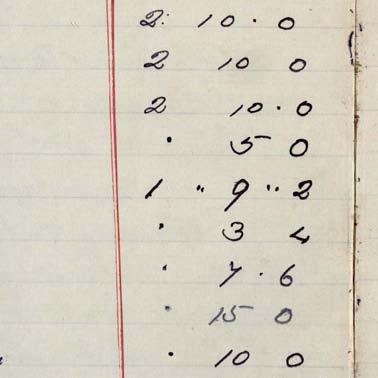 2: 10 . 0
2 10 0
2 10 . 0
. 5 0
1 " 9 " 2
. 3 4
. 7 . 6
. 15 0
. 10 0